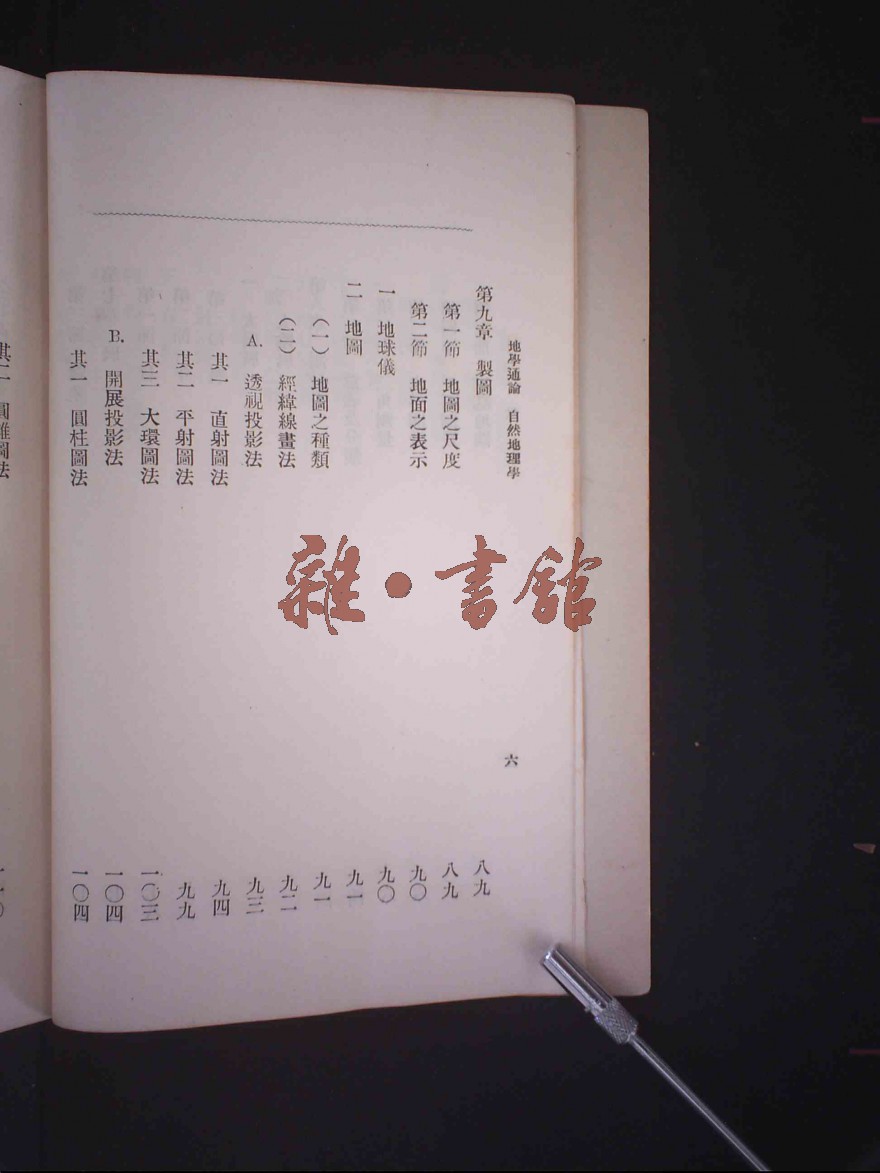 地學通論　自然地理學　六
第九章　製圖　八九
第一節　地圖之尺度　八九
第二節　地面之表示　九〇
一　地球儀　九〇
二　地圖　九一
（一）地圖之種類　九一
（二）經緯線畫法　九二
A.　透視投影法　九三
其一　直射圖法　九四
其二　平射圖法　九九
其三　大環圖法　一〇三
B.　開展投影法　一〇四
其一　圓柱圖法　一〇四
其二　圓錐圖法　一一〇
雜·書館